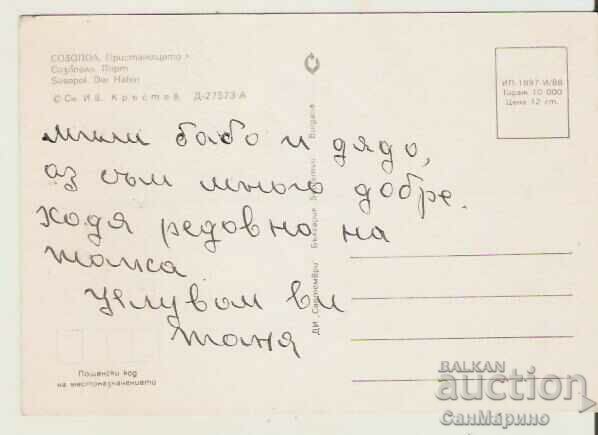 СОЗОПОЛ, Пристанището
Созополь. Порт
Sosopol. Der Hafen
© Сн. Ив. Кръстев Д-27573-А
ИП-1897-И/88
Тираж 10 000
Цена 12 ст.
мили бабо и дядо,
аз съм много добре.
ходя редовно на
плажа
Целувам ви
Таня
ДИ „Септември" България Болгария Bulgarien Bulgaria
Пощенски код
на местоназначението
BALKAN
auction
СанМарино